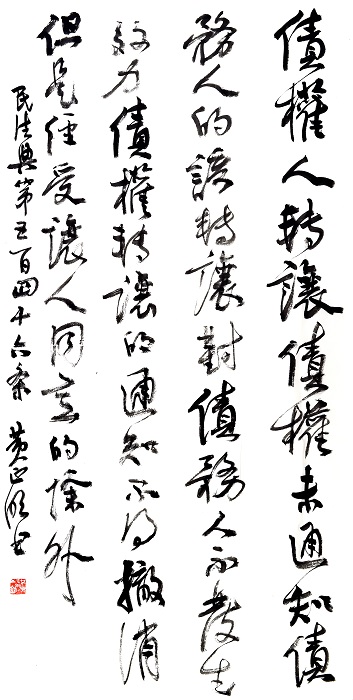 債權人轉讓債權未通知債
務人的該轉讓對債務人不發生
效力債權轉讓的通知不得撤消
但是經受讓人同意的除外
民法典第五百四十六條 黄正明書